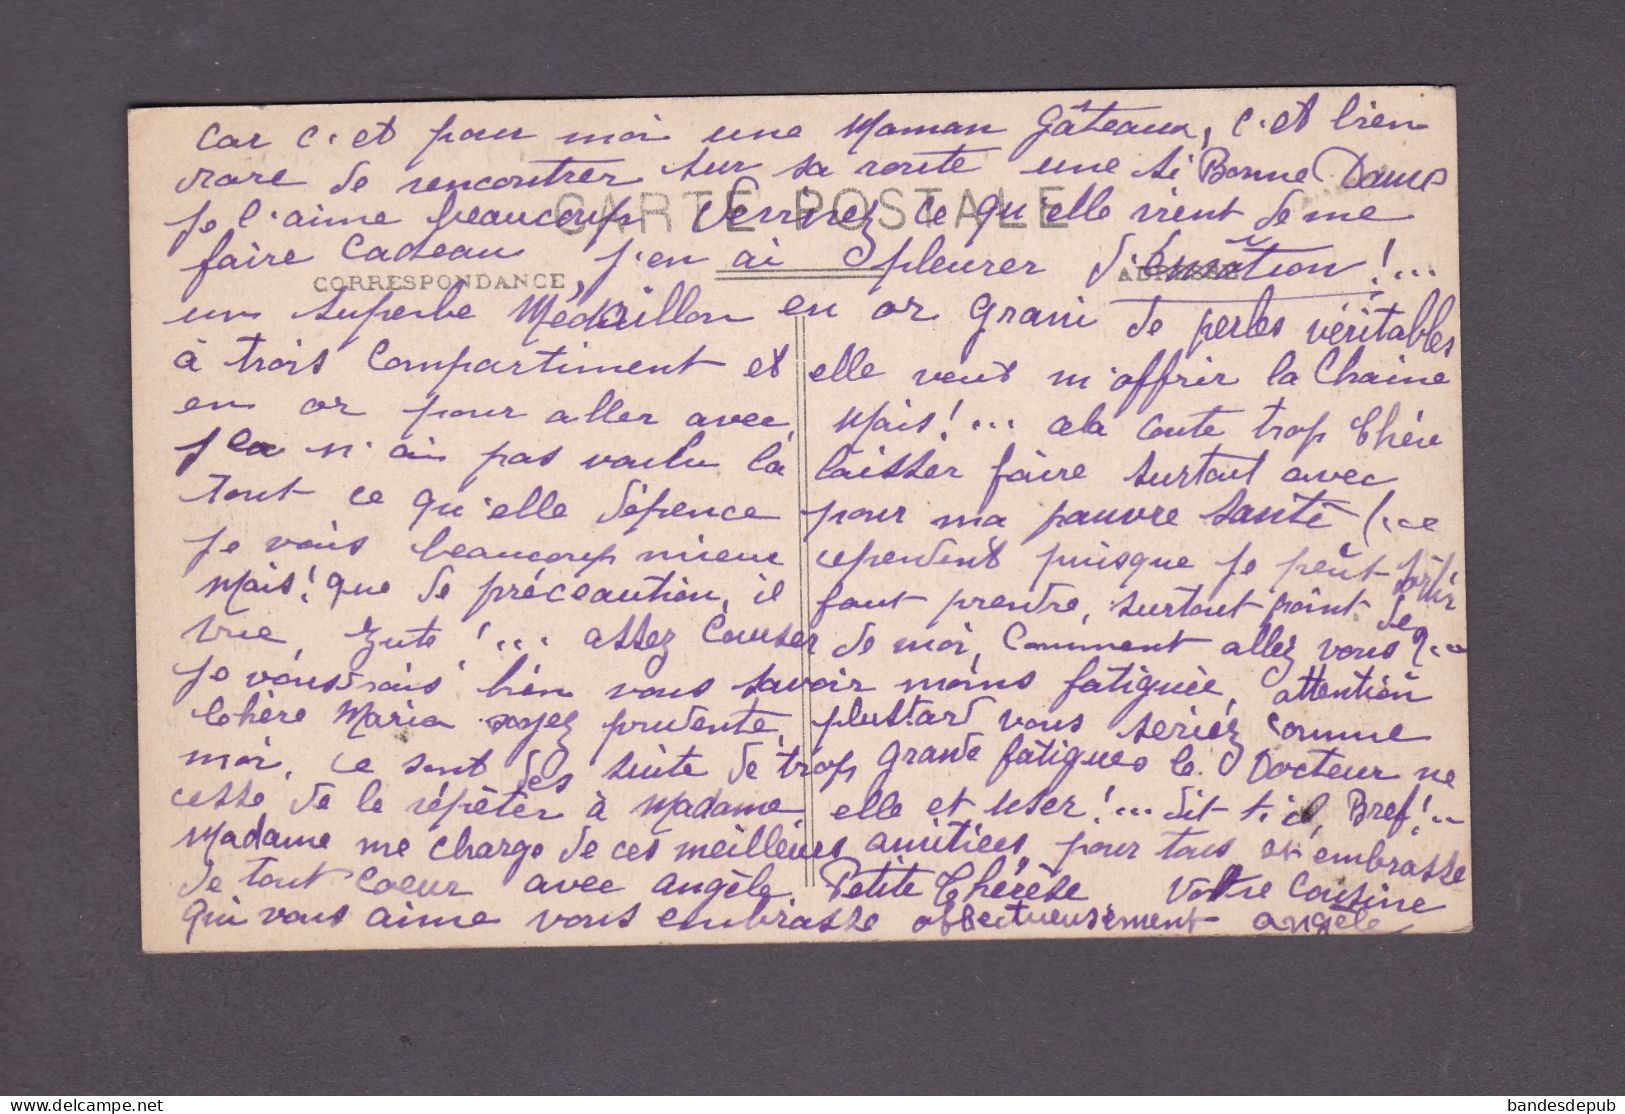 car c'et pour moi une Maman Gâteaux, c'et bien
rare de rencontrer sur sa route une si Bonne Dame
CARTE POSTALE
je l'aime beaucoup ce qu'elle vient de me
faire Cadeau, j'en ai pleurer d'émotion !...
CORRESPONDANCE
ADRESSE
un superbe Médaillon en or Grani de perles véritables
à trois Compartiment et elle veut m'offrir la Chaine
en or pour aller avec, Mais !... cela coute trop Chère
je n'ai pas voulu la laisser faire surtout avec
tout ce qu'elle dépence pour ma pauvre santé !..
je vais beaucoup mieux cependent puisque je peut sortir
Mais ! que de préceaution, il faut prendre, surtout point de
vue, zute !... assez Causer de moi, Comment allez vous ?..
je vousdrais bien vous savoir moins fatiguée, attention
Chère Maria soyez prudente, plustard vous seriez comme
moi, ce sont des suite de trop grande fatigues le Docteur ne
cesse de le répèter à Madame, elle et user !... dit t-il, Bref !..
Madame me charge de ces meilleurs amitiées, pour tous et embrasse
de tout coeur avec angèle Petite Thérèse Votre Cousine
qui vous aime vous embrasse affectueusement angèle
bandesdepub